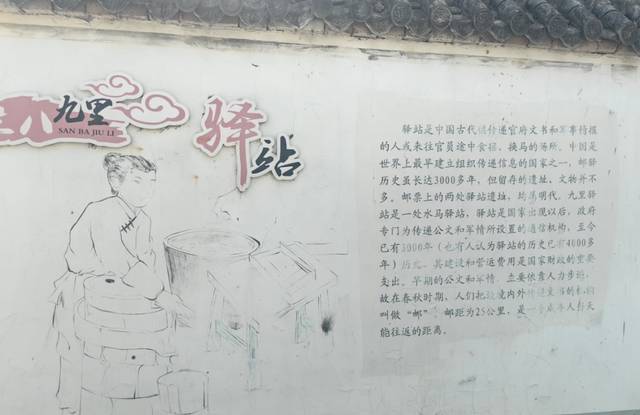 九里
SAN BA JIU LI
驿站
驿站是中国古代供传递官府文书和军事情报
的人或来往官员途中食宿、换马的场所。中国是
世界上最早建立组织传递信息的国家之一，邮驿
历史虽长达3000多年，但留存的遗址、文物并不
多。邮票上的两处驿站遗址，均属明代。九里驿
站是一处水马驿站，驿站是国家出现以后，政府
专门为传递公文和军情所设置的通信机构，至今
已有3000年（也有人认为驿站的历史已有4000多
年）历史。其建设和营运费用是国家财政的重要
支出。早期的公文和军情，主要依靠人力步班，
故在春秋时期，人们把边境内外传递文书的机构
叫做“邮”，邮距为25公里，是一个成年人当天
能往返的距离。